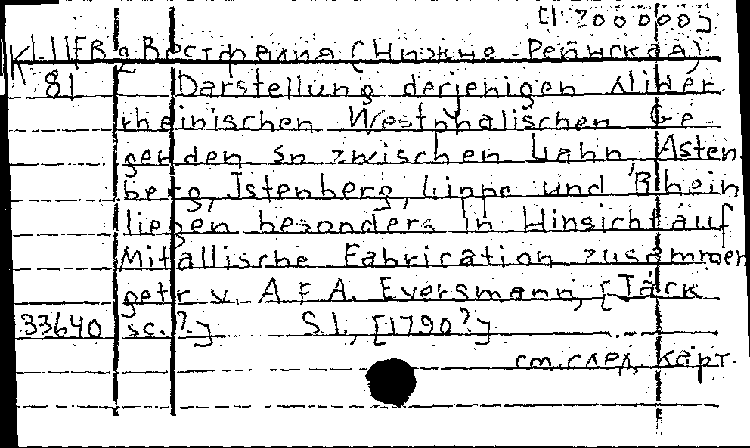 [1:200000]
K 1-IIFB 2 Вестфалия (Нижне-Рейнская)
81 Darstellung derjenigen Nider
rheinischen Westphalischen Ge
genden so zwischen Lahn, Asten
berg, Istenberg, Lippe und Rhein
liegen besonders in Hinsicht auf
Mitallische Fabrication zusammen
getr v. A F A. Eversmann, [Jäck
33640 sc.?] S.l., [1790?]
см. след. карт.